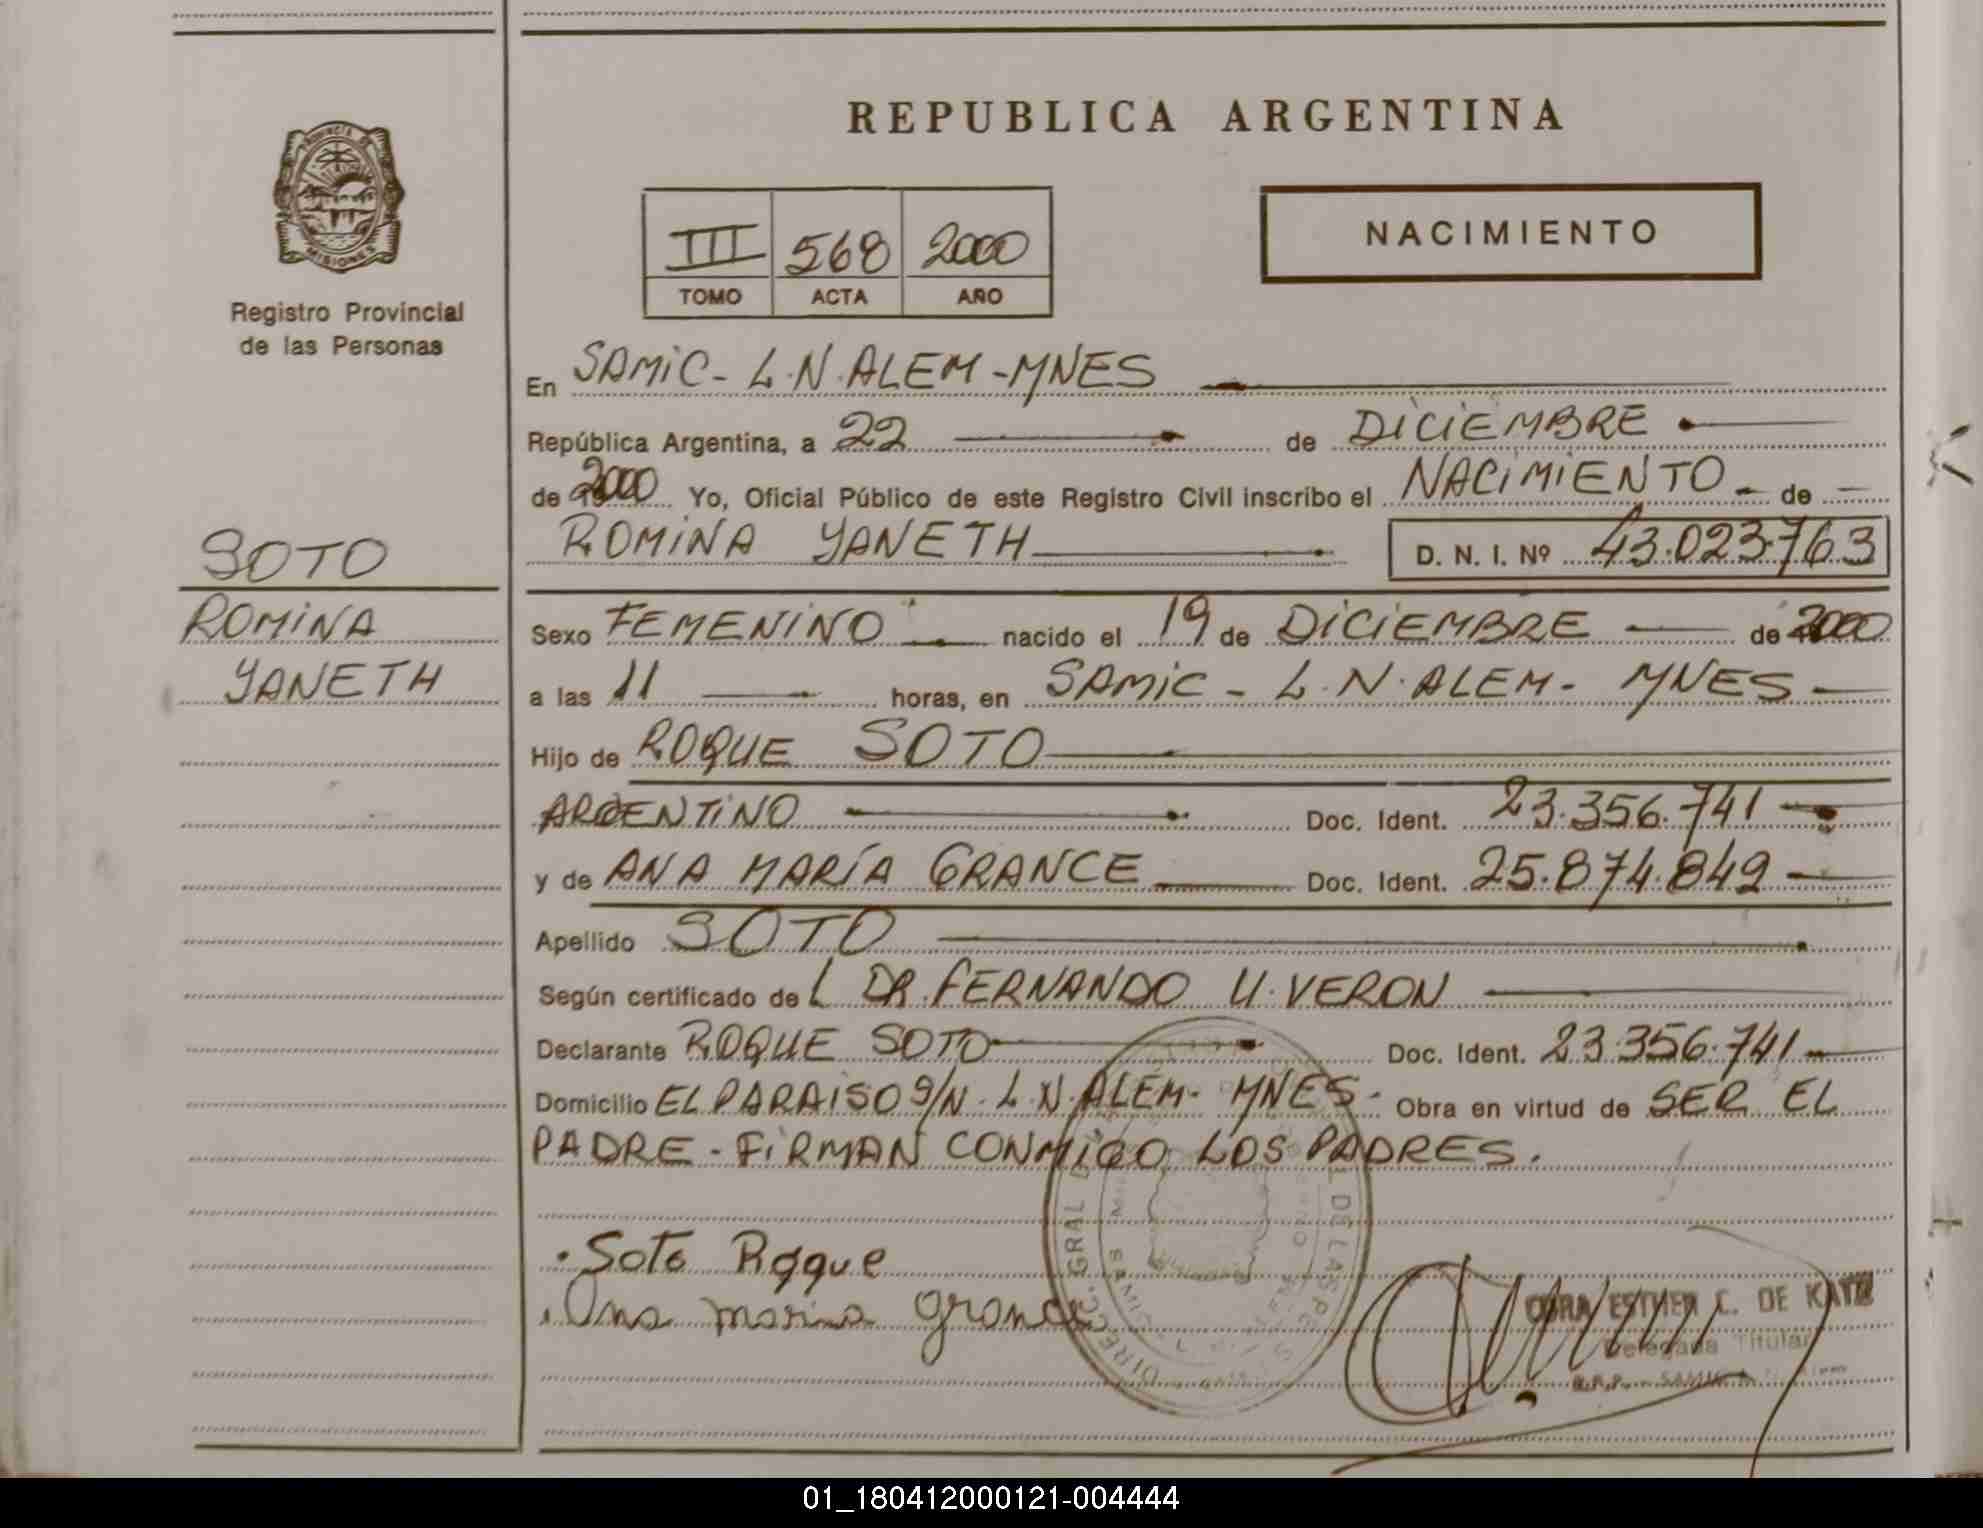 REPUBLICA ARGENTINA
PROVINCIA DE
MISIONES
Registro Provincial
de las Personas
III 568 2000
TOMO ACTA AÑO
NACIMIENTO
En SAMiC - L.N.ALEM - MNES
República Argentina, a 22 de DiCiEMBRE
de 2000 Yo, Oficial Público de este Registro Civil inscribo el NACiMiENTO - de
ROMiNA YANETH D. N. I. Nº 43.023.763
SOTO
ROMiNA
YANETH
Sexo FEMENiNO nacido el 19 de DiCiEMBRE de 2000
a las 11 horas, en SAMiC - L.N.ALEM - MNES
Hijo de ROQUE SOTO
ARGENTiNO Doc. Ident. 23.356.741
y de ANA MARÍA GRANCE Doc. Ident. 25.874.849
Apellido SOTO
Según certificado de L DR. FERNANDO U. VERON
Declarante ROQUE SOTO Doc. Ident. 23.356.741
Domicilio EL PARAiSO S/N. L.N.ALEM - MNES - Obra en virtud de SER EL
PADRE - FiRMAN CONMiGO LOS PADRES.
Soto Roque
Ana maria grance
DIREC. GRAL D
DE LAS PE
ESTHER C. DE KATZ
Delegada Titular
01_180412000121-004444